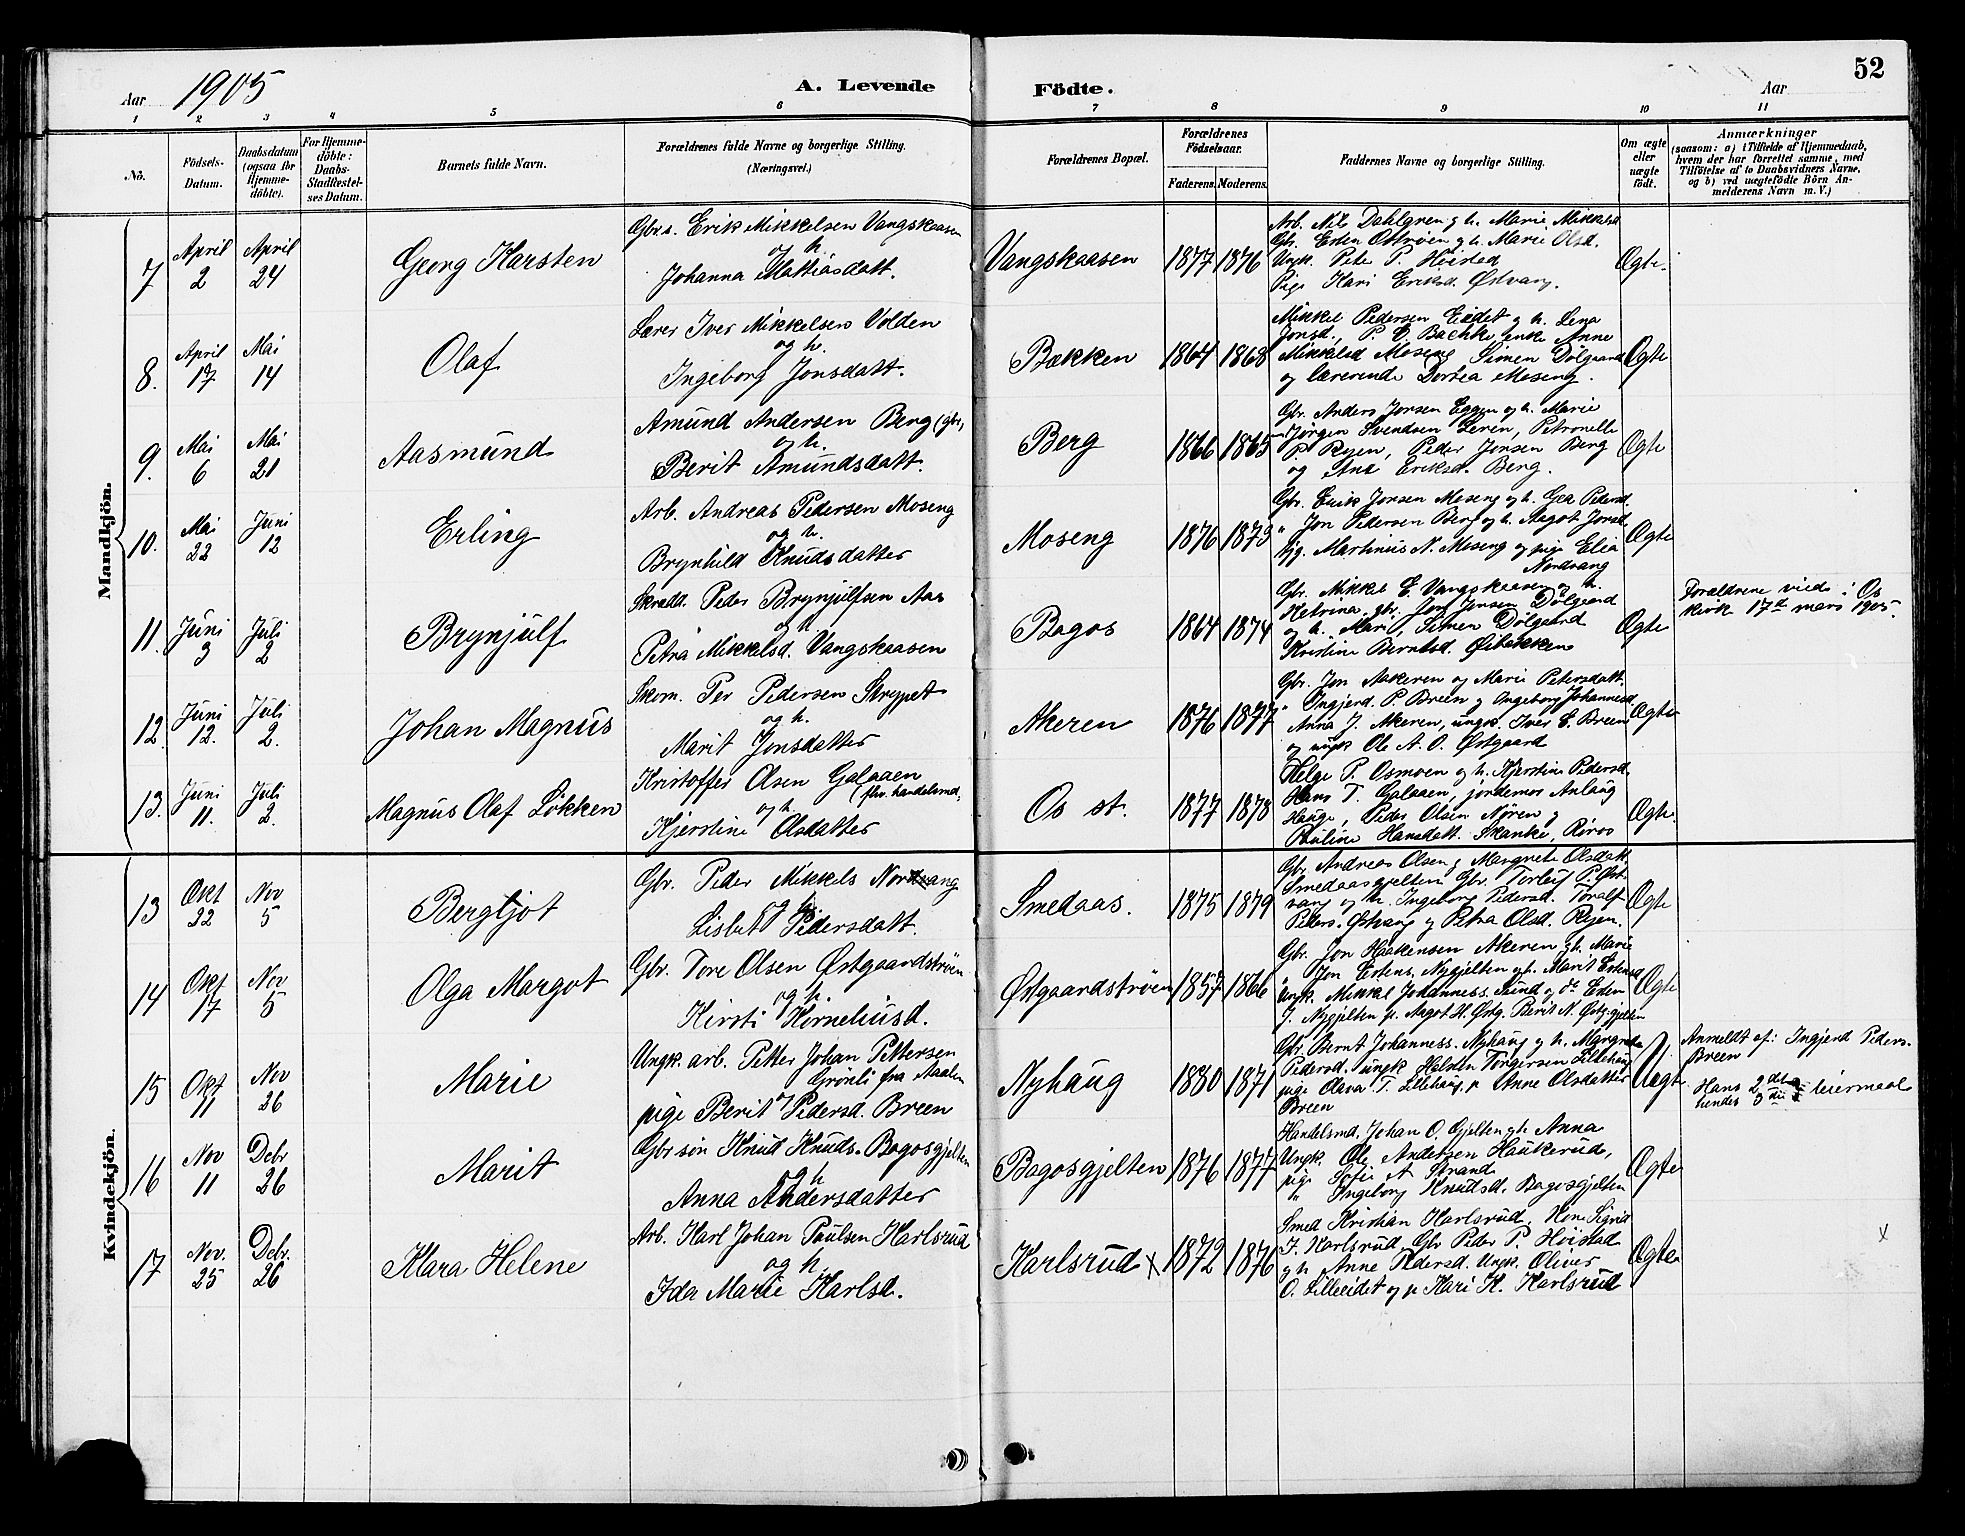 Aar 1905
A. Levende Födte.
Aar
52
1 2 3 4 5 6 7 8 9 10 11
No.
Födsels-Datum.
Daabsdatum (ogsaa for Hjemmedöbte).
For Hjemmedöbte: Daabs-Stadfæstelses Datum.
Barnets fulde Navn.
Forældrenes fulde Navne og borgerlige Stilling.
(Næringsvei.)
Forældrenes Bopæl.
Forældrenes Födselsaar.
Faderens. Moderens.
Faddernes Navne og borgerlige Stilling.
Om ægte eller uægte födt.
Anmærkninger
(saasom: a) i Tilfælde af Hjemmedaab,
hvem der har forrettet samme, med
Tilföielse af to Daabsvidners Navne,
og b) ved uægtefödte Börn Anmelderens Navn m. V.)
Mandkjön.
7 April 2 April 24 Georg Karsten
Gbrs. Erik Mikkelsen Vangskaasen
og h.
Johanna Mattiasdatt.
Vangskaasen 1877 1876
Arb. Nils Dahlgren og h. Marie Mikkelsd
Gbr. Esten Ostrøen og h. Marie Olsd.
Ungk. Peter P. Hoistad
Pige Kari Eriksd. Østvang.
Ægte.
8. April 17 Mai 14 Olaf
Lærer Iver Mikkelsen Volden
og h.
Ingeborg Jonsdatt.
Bækken 1864 1868
Mikkel Pedersen Eidet og h. Lena
Jonsd., P. E. Bachke, enke Anne
Mikkelsd Moseng Simen Dølgaard
og lærerinde Dortea Moseng.
Ægte
9. Mai 6 Mai 21 Aasmund
Amund Andersen Berg (gbr,
og h.
Berit Amundsdatt.
Berg 1866 1865
Gbr. Anders Jonsen Eggen og h. Marie
" Jørgen Svendsen Leren, Petronelle
P. Ryen, Peder Jonsen Berg
og Ane Eriksd. Berg.
Ægte
10. Mai 22 Juni 12 Erling
Arb. Andreas Pedersen Moseng
og h.
Brynhild Knudsdatter
Moseng 1876 1873
Gbr. Erik Jonsen Moseng og h. Gea Pedersd
" Jon Pedersen Berg og h. Aagot Jonsd
Martinius N. Moseng og pige Elia
Nordvang
Ægte
11. Juni 3 Juli 2 Brynjulf
Skrædd. Peder Brynjulfsen Aas
og h.
Petra Mikkelsd. Vangskaasen
Bagos 1864 1874
Gbr. Mikkel E. Vangskaasen og h.
Ketrina, gbr. Jon Jonsen Dølgaard
og h. Mari, Simen Dølgaard
Kristine Berntsd. Øibækken
Ægte
Forældrene viede i Os
kirk 17de mars 1905.
12. Juni 12. Juli 2. Johan Magnus
Skom. Per Pedersen Skryset
og h.
Marit Jonsdatter
Akeren 1876 1877
Gbr. Jon Aakeren og Marie Petersdatt.
" Ingjerd. P. Breen og Ingeborg Johannesd
Anna J. Akeren, ungk. Iver E. Breen
og ungk Ole A. O. Østgaard
Ægte
13. Juni 11. Juli 2. Magnus Olaf Løkken
Kristoffer Olsen Galaaen
(fhv. handelsmd,
og h.
Kjerstine Olsdatter
Os st. 1877 1878
Helge P. Osmoen og h. Kjerstine Pedersd.
Hans T. Galaaen, jordemor Anlaug
Hauge, Peder Olsen Nøren og
Pauline Hansdatt. Skanke, Røros
Ægte.
Kvindekjön.
13 Okt 22 Nov 5 Bergljot
Gbr. Peder Mikkels Nordvang
og h.
Lisbet Pedersdatt.
Smedaas. 1875 1879
Gbr. Andreas Olsen og Margrete Olsdatt.
Smedaasgjelten Gbr. Torleif P. Østvang og h. Ingeborg Pedersd. Toralf
Peders. Østvang og Petra Olsd. Ryen.
Ægte
14 Okt 17 Nov 5 Olga Margot
Gbr. Tore Olsen Østgaardstrøen
og h.
Kirsti Korneliusd.
Østgaardstrøen 1857 1866
Gbr. Jon Haakensen Akeren og h. Marie
" Jon Estens. Nygjelten og h. Marit Estensd
Ungk. Mikkel Johanness. Sund og do Esten
J. Nygjelten p. Aagot H. Østg. Berit N. Østg.gjelten
Ægte
15 Okt 11 Nov 26 Marie
Ungk. arb. Petter Johan Pettersen
Grønli fra Aalen
og
pige Berit Pedersd. Breen
Nyhaug 1880 1871
Gbr Bernt Johanness. Nyhaug og h. Margrete
Pedersd. ungk Halsten Torgersen Lillehaug
pige Olava T. Lillehaug, p Anne Olsdatter
Breen
Uægte
Anmeldt af: Ingjerd Peders.
Breen
Hans 2det
hendes 3die leiermaal
16 Nov 11 Debr 26 Marit
Gbr.søn Knud Knuds. Bagosgjelten
og h
Anna Andersdatter
Bagosgjelten 1876 1877
Handelsmd. Johan O. Gjelten og h. Anna
Ungk. Ole Andersen Haukerud,
pige Sofie A Strand
" Ingeborg Knudsd. Bagosgjelten
Ægte
17 Nov. 25 Debr. 26 Klara Helene
Arb. Karl Johan Paulsen Karlsrud
og h.
Ida Marie Karlsd.
Karlsrud x 1872 1876
Smed Kristian Karlsrud, Kone Sigrid
I. Karlsrud, Gbr Peder P. Hoistad
og h Anne Pedersd. Ungk. Oliver
O. Lilleeidet og p Kari K. Karlsrud
Ægte
x